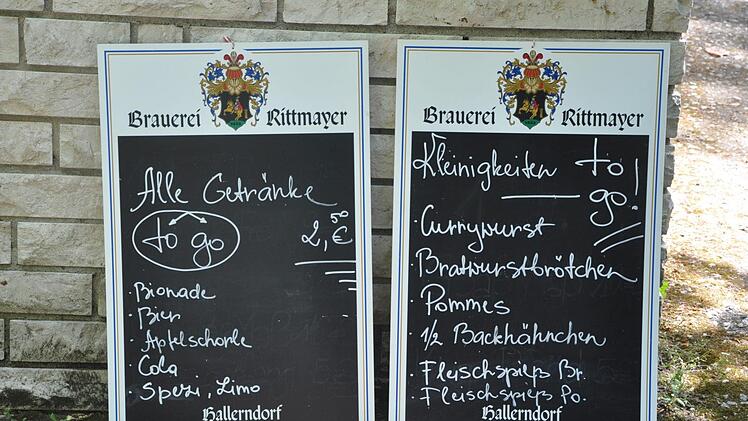 Brauerei Rittmayer
Alle Getränke
to go 2,50 €
· Bionade
· Bier
· Apfelschorle
· Cola
· Spezi, Limo
Hallerndorf
Brauerei Rittmayer
Kleinigkeiten to
go!
· Currywurst
· Bratwurstbrötchen
· Pommes
· 1/2 Backhähnchen
· Fleischspieß Br.
· Fleischspieß Po.
Hallerndorf